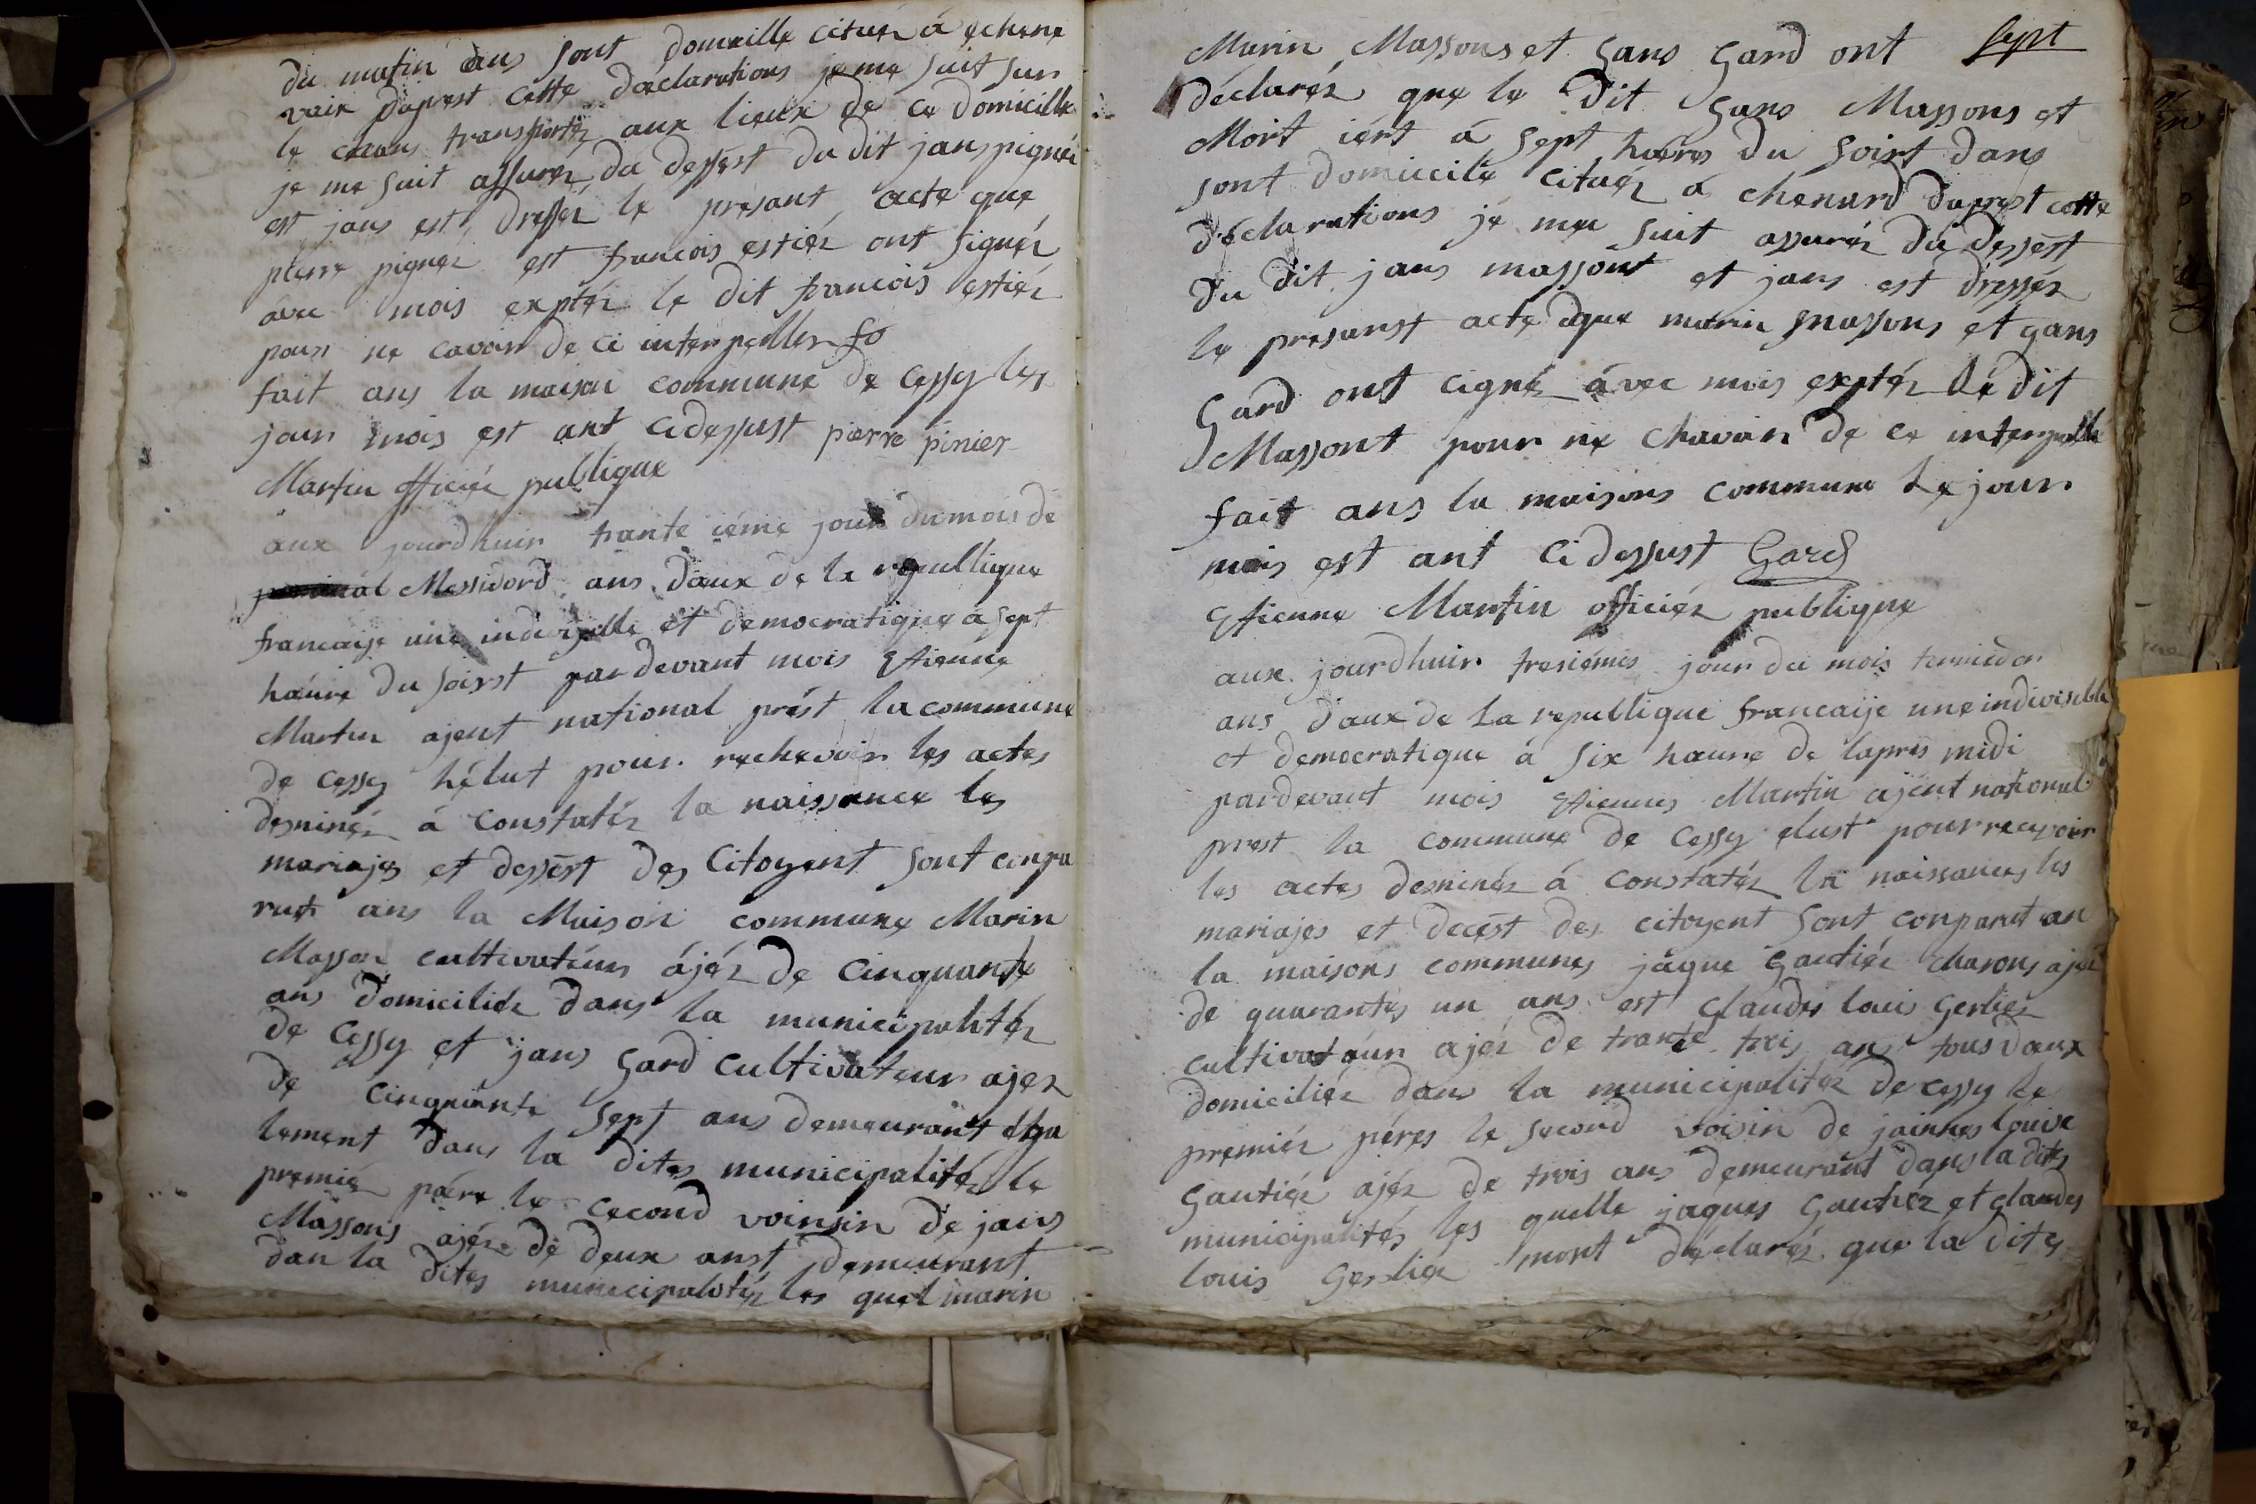 du matin dans sont domcille cituéz à echene
vaix daprest cette daeclarations je me suit sur
le chans transportéz aux lieux de ce domicille
je me suit assuréz du dessest du dit jans pignéi
est jans est dresséz le presant acte que
pierre pignéz est francois estiéz ont signéz
avec mois exptéz le dit francois estiéz
pour ne cavoir de ci interpeller fo
fait ans la maison commune de Cessy les
jour mois est ant cidessust pierre pinier
Martin officiéz publique
aux jourdhuir trante iéme jour du mois de
Messidord ans daux de la republique
francaise une indivizelle et democratique à sept
haure du soirst pardevant mois Etienne
Martin ajent national prést la commune
de cessy hélut pour rechevoir les actes
desninéz à constatéz la naissance les
mariajes et dessest des Citoyent sont conpa
rust ans la Maison commune Marin
Masson cultivateur ájéz de cinquante
ans domiciliéz dans la municipalitéz
de Cessy et jans Gard cultivateur ajéz
de cinquante sept ans demeurant éga
lement dans la dites municipalitéz le
premié pére le cecond voinsin de jans
Massons ajéz de deux anst demeurant
dan la dites municipalitéz les quel marin
Marin Massons et Gans Gard ont sept
déclaréz que le dit Gans Massons et
Mort iért á sept haéres du soirt dans
sont domiicile cituéz á chenard daprest cette
déclarations jé mee suit assuréz du dessest
du dit jans massont et jans est dresséz
le presanst acte que marin massons et gans
Gard ont cigné avec mois exptéz le dit
Massont pour ne chavoir de ce interpelle
fait ans la maisons commune le jour
mois est ant cidessust Gard
Etienne Martin officiéz publique
aux jourdhuir tresiémes jour du mois termidor
ans daux de la republique francaise une indivisible
et democratique à six haure de lapres midi
pardevant mois Etiennes Martin ajent national
prest la commune de Cessy elust pour recevoir
les actes desninéz à constatéz la naissances les
mariajes et decest des citoyent sont conparut an
la maisons communes jâque Gautiéz charons ajéz
de quarantes un ans est Claudes louis Gerliez
cultivateur ajéz de trante trois ans tous daux
domiciliéz dans la municipalitéz de cessy le
premiér péres le second voisin de jainnes louise
Gautiéz ajéz de trois ans demeurant dans la dites
municipalités les quelle jaques Gautiéz et Claudes
louis Gerliez mont déclaréz que la dites